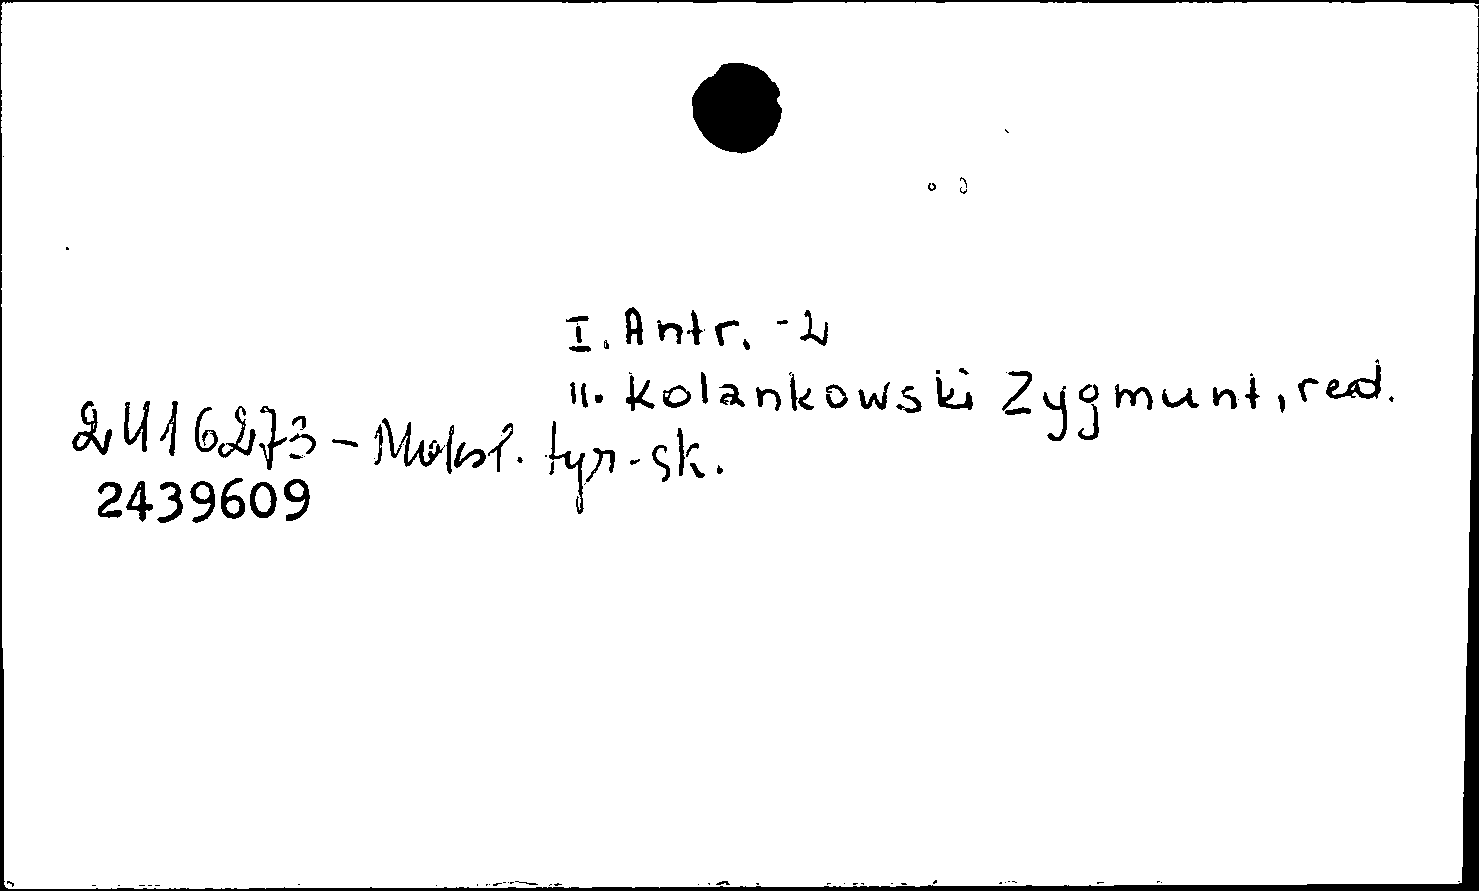 I. Antr. - 2
II. Kolankowski Zygmunt, red.
2416273 – Moksl. tyr. sk.
2439609